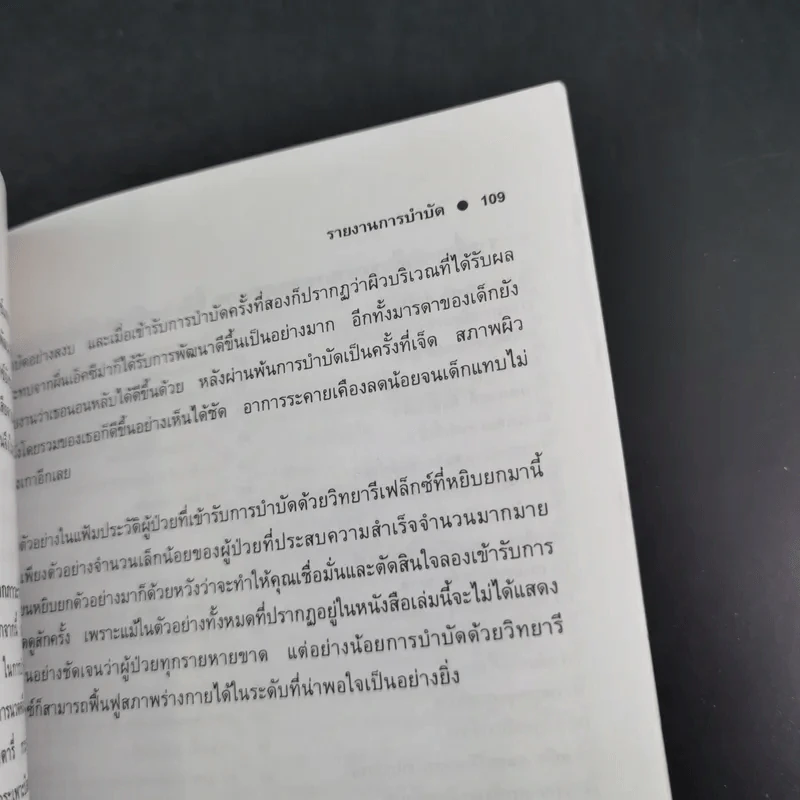 รายงานการบำบัด ● 109
บัดอย่างสงบ และเมื่อเข้ารับการบำบัดครั้งที่สองก็ปรากฏว่าผิวบริเวณที่ได้รับผล
ะทบจากผื่นเอ็คซีม่าก็ได้รับการพัฒนาดีขึ้นเป็นอย่างมาก อีกทั้งมารดาของเด็กยัง
งานว่าเธอนอนหลับได้ดีขึ้นด้วย หลังผ่านพ้นการบำบัดเป็นครั้งที่เจ็ด สภาพผิว
โดยรวมของเธอก็ดีขึ้นอย่างเห็นได้ชัด อาการระคายเคืองลดน้อยจนเด็กแทบไม่
งเกาอีกเลย
ตัวอย่างในแฟ้มประวัติผู้ป่วยที่เข้ารับการบำบัดด้วยวิทยารีเฟล็กซ์ที่หยิบยกมานี้
เพียงตัวอย่างจำนวนเล็กน้อยของผู้ป่วยที่ประสบความสำเร็จจำนวนมากมาย
นหยิบยกตัวอย่างมาก็ด้วยหวังว่าจะทำให้คุณเชื่อมั่นและตัดสินใจลองเข้ารับการ
ดูสักครั้ง เพราะแม้ในตัวอย่างทั้งหมดที่ปรากฏอยู่ในหนังสือเล่มนี้จะไม่ได้แสดง
นอย่างชัดเจนว่าผู้ป่วยทุกรายหายขาด แต่อย่างน้อยการบำบัดด้วยวิทยารี
ซ์ก็สามารถฟื้นฟูสภาพร่างกายได้ในระดับที่น่าพอใจเป็นอย่างยิ่ง